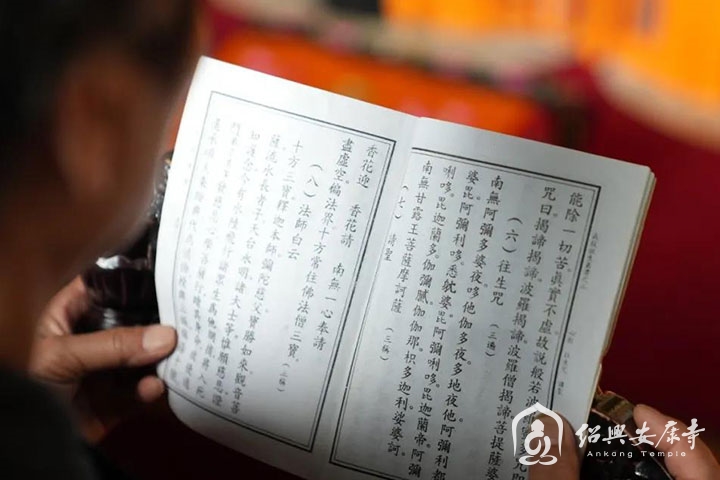 能除一切苦。眞實不虛。故説般若波
咒曰。揭諦揭諦。波羅揭諦。波羅僧揭諦。菩提薩婆
（六）往生咒
南無阿彌多婆夜。哆他伽多夜。哆地夜他。阿彌利都
婆毘。阿彌利哆。悉躭婆毘。阿彌利哆。毘迦蘭帝。阿彌
利哆。毘迦蘭多。伽彌膩。伽伽那。枳多迦利。娑婆訶。
（三徧）
南無甘路王菩薩摩訶薩（三稱）
（七）請聖
香花迎　香花請　南無一心奉請
盡虛空徧法界十方常住佛法僧三寶。（三稱）
（八）法師白云
十方三寶。釋迦本師。彌陀慈父。寶勝如來。觀音菩
薩。流水長者子。天台永明。諸大士等。惟願慈悲。證
紹興安康寺
Ankang Temple